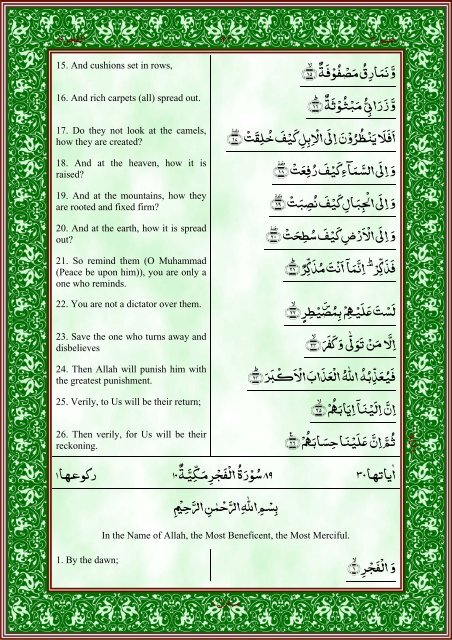 15. And cushions set in rows,
وَّنَمَارِقُ مَصْفُوْفَةٌ ۙ﴿۱۵﴾
16. And rich carpets (all) spread out.
وَّزَرَابِيُّ مَبْثُوْثَةٌ ؕ﴿۱۶﴾
17. Do they not look at the camels,
how they are created?
اَفَلَا يَنْظُرُوْنَ اِلَى الْاِبِلِ كَيْفَ خُلِقَتْ
18. And at the heaven, how it is
raised?
وَ اِلَى السَّمَآءِ كَيْفَ رُفِعَتْ
19. And at the mountains, how they
are rooted and fixed firm?
وَ اِلَى الْجِبَالِ كَيْفَ نُصِبَتْ
20. And at the earth, how it is spread
out?
وَ اِلَى الْاَرْضِ كَيْفَ سُطِحَتْ
21. So remind them (O Muhammad
(Peace be upon him)), you are only a
one who reminds.
فَذَكِّرْ ؕ اِنَّمَاۤ اَنْتَ مُذَكِّرٌ ؕ﴿۲۱﴾
22. You are not a dictator over them.
لَسْتَ عَلَيْهِمْ بِمُصَۜيْطِرٍ ۙ﴿۲۲﴾
23. Save the one who turns away and
disbelieves
اِلَّا مَنْ تَوَلّٰى وَ كَفَرَ ۙ﴿۲۳﴾
24. Then Allah will punish him with
the greatest punishment.
فَيُعَذِّبُهُ اللّٰهُ الْعَذَابَ الْاَكْبَرَ ؕ﴿۲۴﴾
25. Verily, to Us will be their return;
اِنَّ اِلَيْنَاۤ اِيَابَهُمْ ۙ﴿۲۵﴾
26. Then verily, for Us will be their
reckoning.
ثُمَّ اِنَّ عَلَيْنَا حِسَابَهُمْ ﴿۲۶﴾
اٰياتها ۳۰ ۸۹ سُوْرَةُ الْفَجْرِ مَكِّيَّةٌ ۱۰ ركوعها ۱
بِسْمِ اللّٰهِ الرَّحْمٰنِ الرَّحِيْمِ
In the Name of Allah, the Most Beneficent, the Most Merciful.
1. By the dawn;
وَ الْفَجْرِ ۙ﴿۱﴾